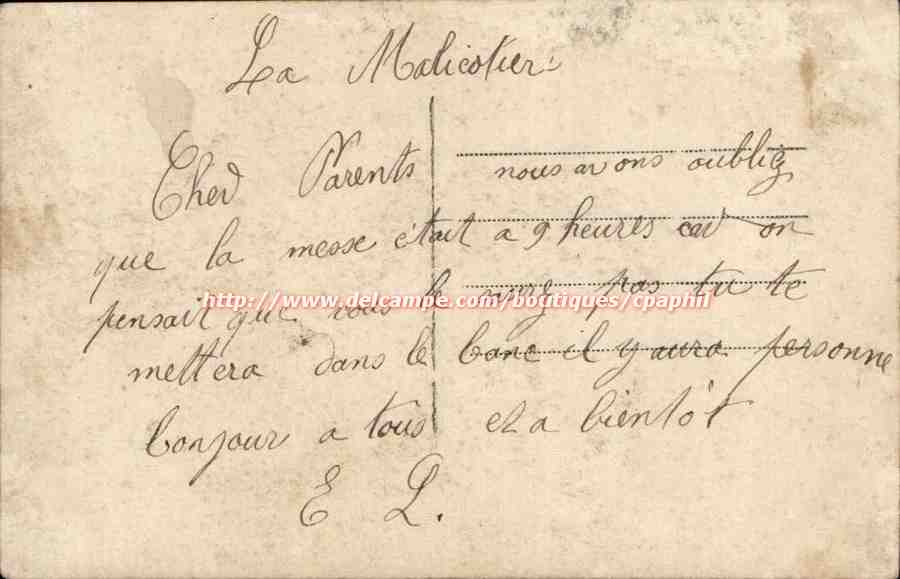 La Malicotier
Cher Parents nous avons oubliez
que la messe était a 9 heures car on
pensait que vous le pas tu te
http://www.delcampe.com/boutiques/cpaphil
mettera dans le banc il y aura personne
bonjour a tous et a bientôt
E L.